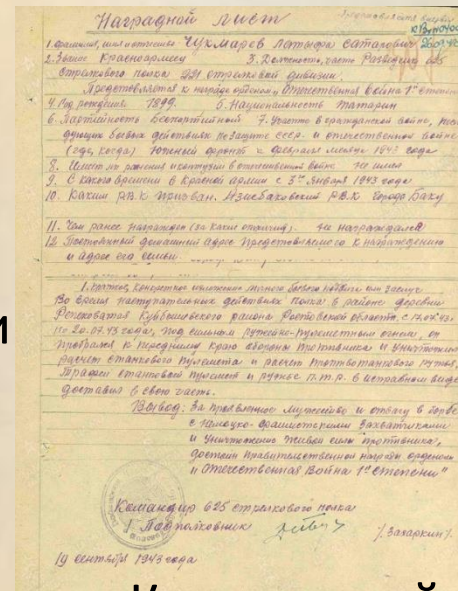 Наградной лист
1. Фамилия, имя и отчество Чукмаров Латыфа Сатарович
2. Звание Красноармеец 3. Должность, часть Разведчик 625
стрелкового полка 221 стрелковой дивизии.
Представляется к награде орденом "Отечественная война 1ой степени
4. Год рождения 1899. 5. Национальность Татарин
6. Партийность Беспартийный 7. Участие в гражданской войне,
дующих боевых действиях по защите СССР и отечественной войне
(где, когда) Южный фронт с февраля месяца 1943 года
8. Имеет ли ранения и контузии в отечественной войне не имел
9. С какого времени в Красной армии с 3го Января 1943 года
10. Каким Р.В.К призван. Азизбековский Р.В.К города Баку
11. Чем ранее награжден (за какие отличия). не награждался
12. Постоянный домашний адрес представляемого к награждению
и адрес его семьи
1. Краткое, конкретное изложение личного боевого подвига или заслуг
Во время наступательных действиях полка в районе деревни
Куйбышевского района Ростовской области, с 17.07.43.
по 20.07.43 года, под сильным ружейно-пулеметным огнем, он
пробрался к переднему краю обороны противника и уничтожил
расчет станкового пулемета и расчет противотанкового ружья,
станковой пулемет и ружье П.Т.Р. в исправном виде
доставил в свою часть.
Вывод: За проявленное мужество и отвагу в борьбе
с немецко-фашистскими захватчиками
и уничтожение живой силы противника,
достоин правительственной награды орденом
"Отечественная Война 1ой степени"
Командир 625 стрелкового полка
Подполковник /Захаркин/.
19 сентября 1943 года
и